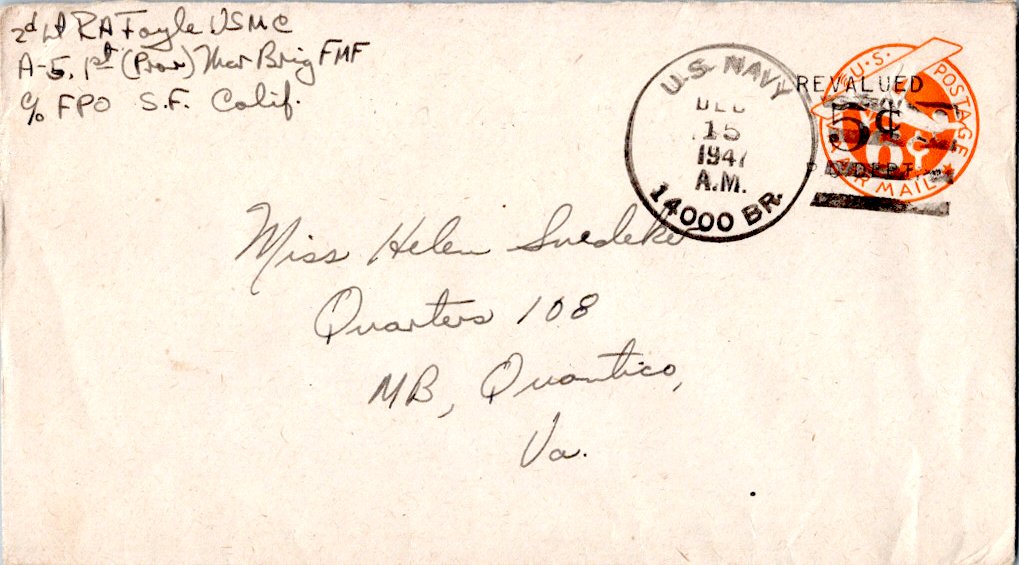 2d Lt RA Foyle USMC
A-5, 1st (Prov) Mar Brig FMF
c/o FPO S.F. Calif.
U.S. NAVY
DEC
15
1947
A.M.
14000 BR.
REVALUED
5¢
P.O. DEPT.
U.S. POSTAGE
6¢
AIR MAIL
Miss Helen Snedeker
Quarters 108
MB, Quantico,
Va.